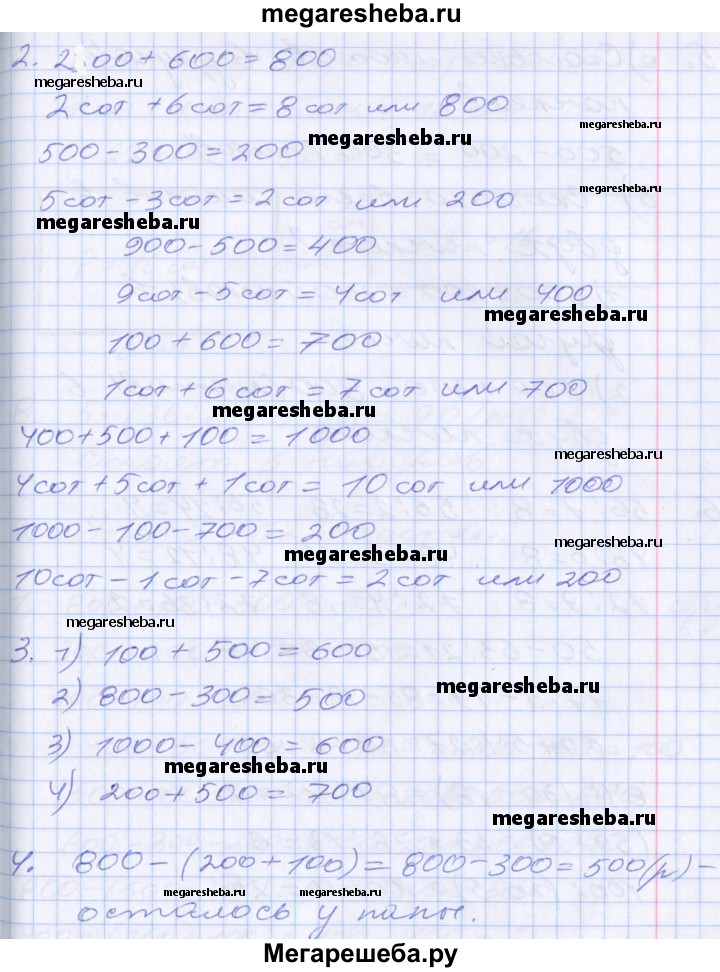 megaresheba.ru
2. 200 + 600 = 800
megaresheba.ru
2 сот + 6 сот = 8 сот или 800
megaresheba.ru
megaresheba.ru
500 - 300 = 200
5 сот - 3 сот = 2 сот или 200
megaresheba.ru
megaresheba.ru
900 - 500 = 400
9 сот - 5 сот = 4 сот или 400
megaresheba.ru
100 + 600 = 700
1 сот + 6 сот = 7 сот или 700
megaresheba.ru
400 + 500 + 100 = 1000
megaresheba.ru
4 сот + 5 сот + 1 сот = 10 сот или 1000
1000 - 100 - 700 = 200
megaresheba.ru
megaresheba.ru
10 сот - 1 сот - 7 сот = 2 сот или 200
megaresheba.ru
3. 1) 100 + 500 = 600
megaresheba.ru
2) 800 - 300 = 500
3) 1000 - 400 = 600
megaresheba.ru
4) 200 + 500 = 700
megaresheba.ru
4. 800 - (200 + 100) = 800 - 300 = 500 (р) -
megaresheba.ru
megaresheba.ru
осталось у папы.
Мегарешеба.ру